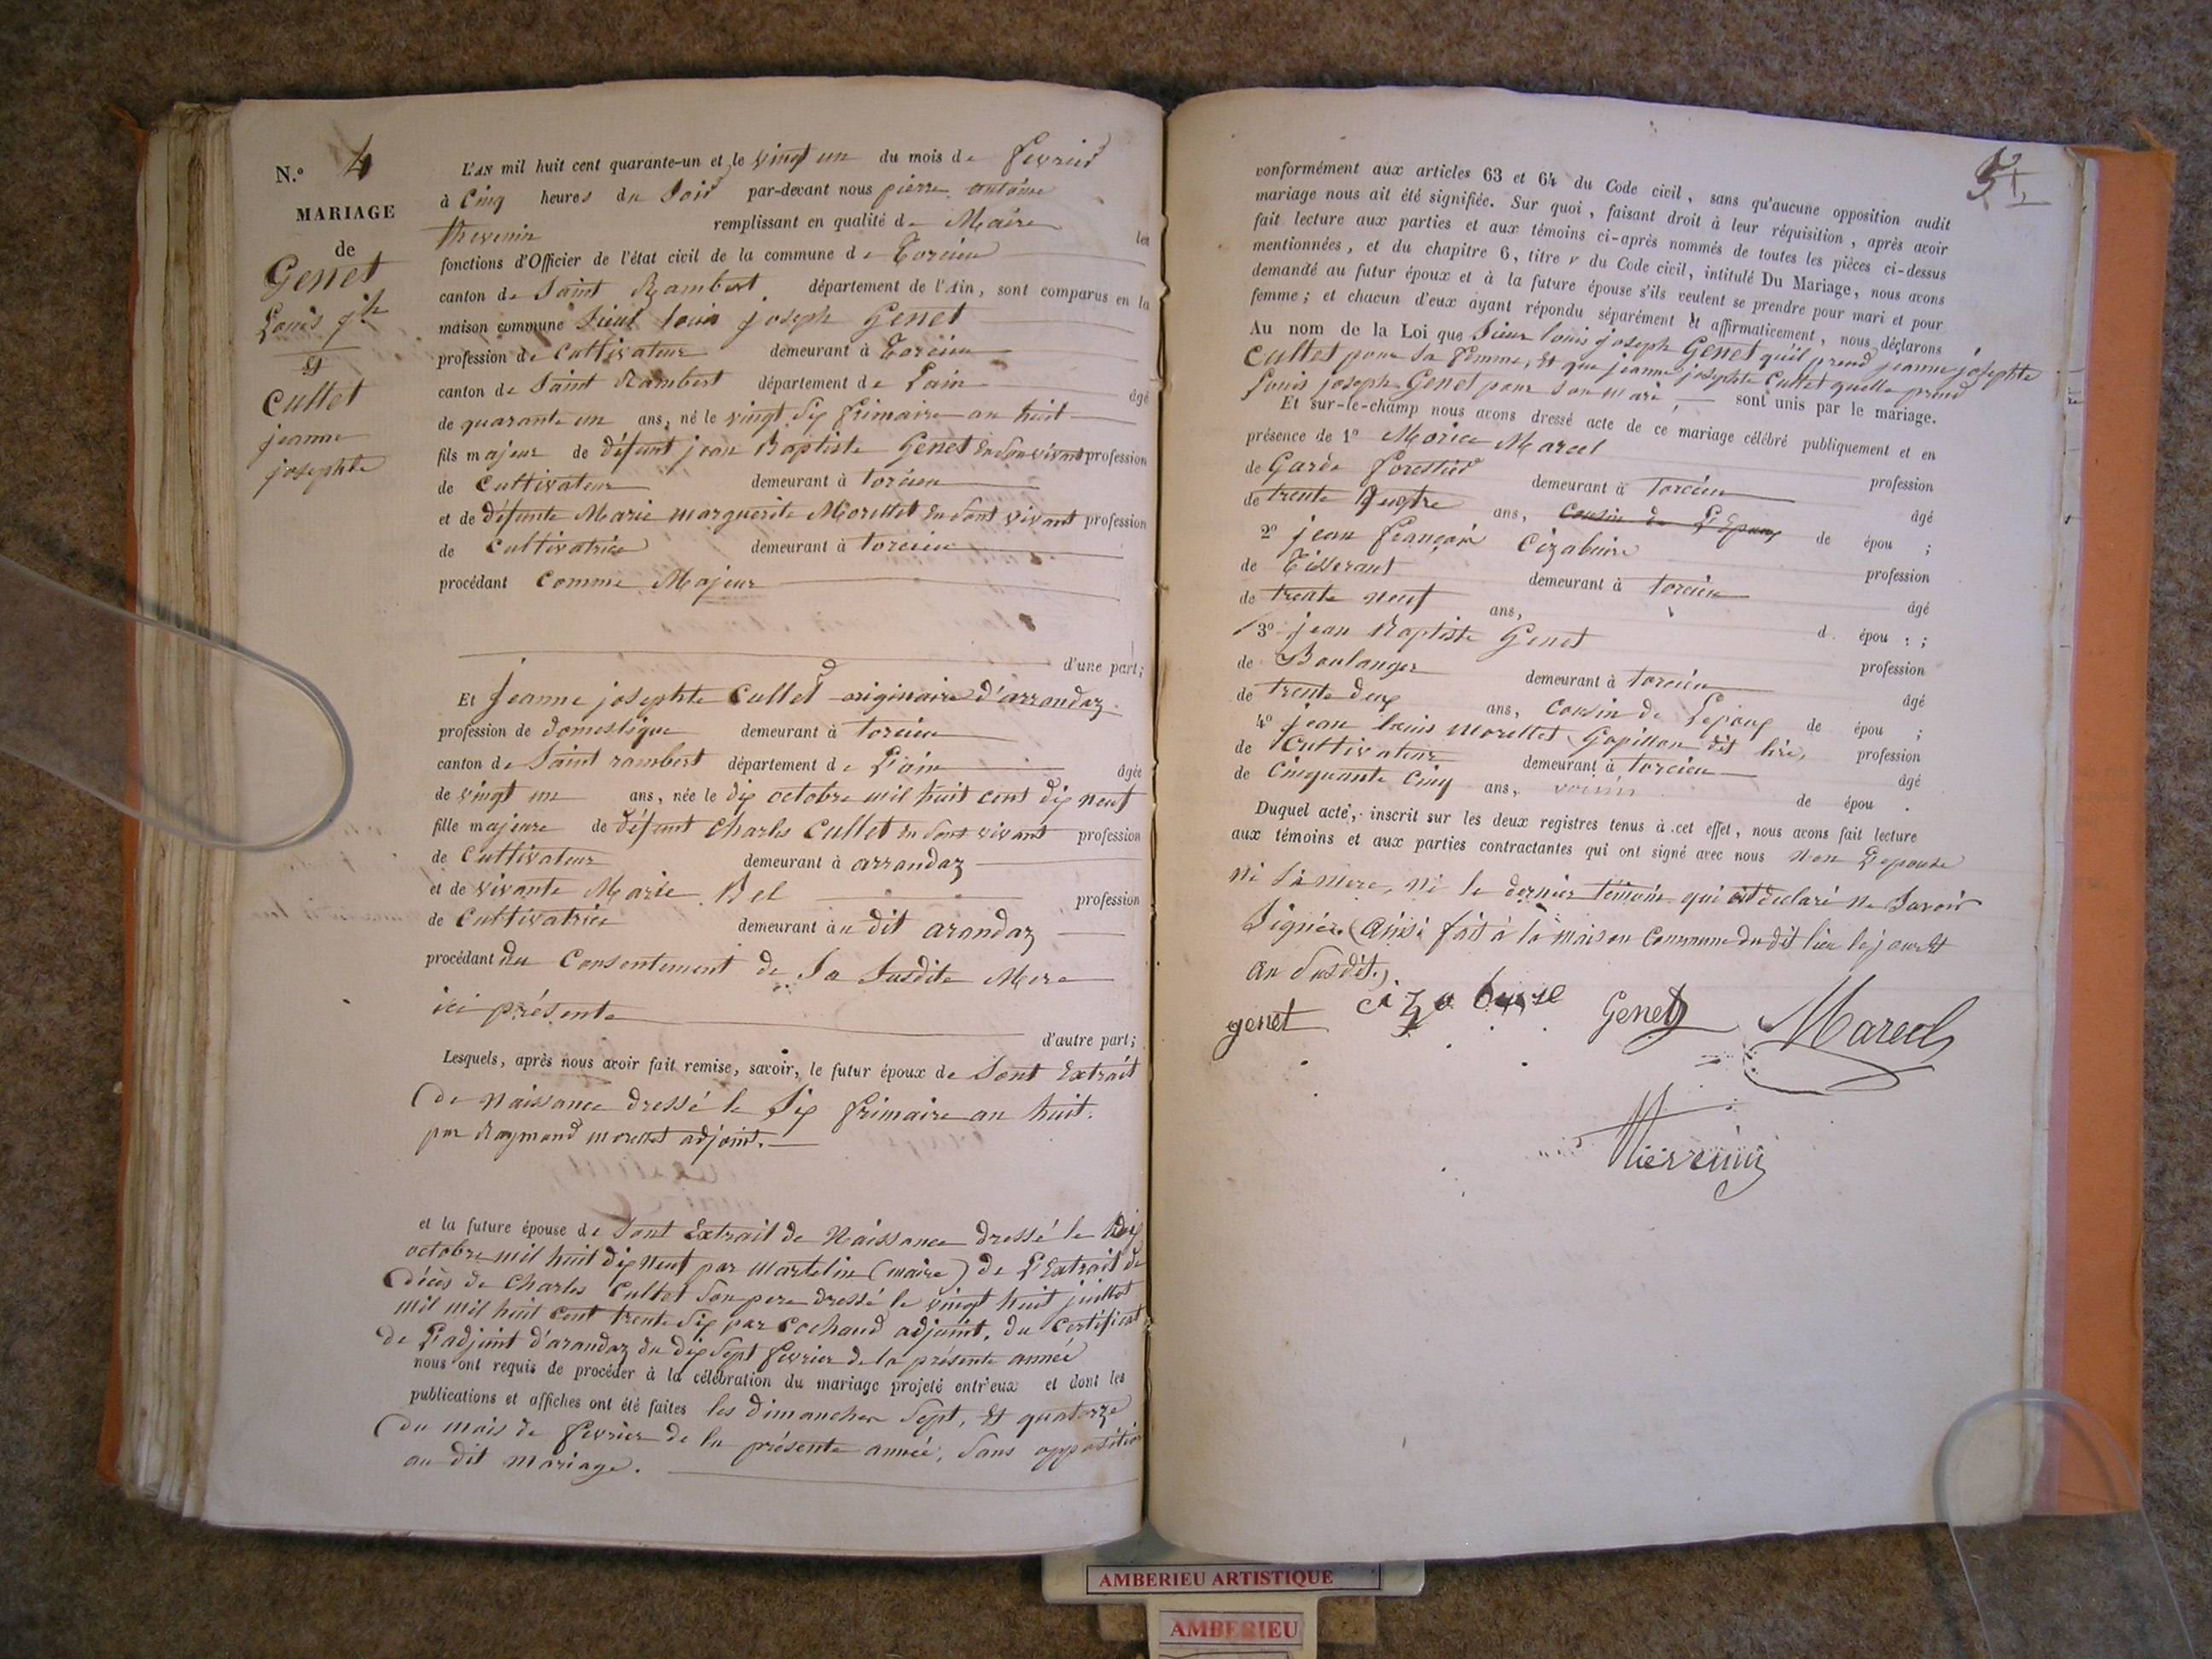 N.º 4
MARIAGE
de
Genet
Louis jh
et
Cullet
jeanne
josephte
L'AN mil huit cent quarante-un et le vingt un du mois de fevrier
à Cinq heures du Soir par-devant nous pierre antoine
thevenin remplissant en qualité de Maire les
fonctions d'Officier de l'état civil de la commune de Torcieu
canton de Saint Rambert département de l'Ain, sont comparus en la
maison commune Sieur louis joseph Genet
profession de Cultivateur demeurant à Torcieu
canton de Saint Rambert département de Lain âgé
de quarante un ans, né le vingt Six frimaire an huit
fils majeur de défunt jean Baptiste Genet en Son vivant profession
de Cultivateur demeurant à torcieu
et de défunte Marie marguerite Morettet en Sont vivant profession
de Cultivatrice demeurant à torcieu
procédant Comme Majeur
d'une part;
Et Jeanne josephte Cullet originaire d'arrandaz
profession de domestique demeurant à torcieu
canton de Saint rambert département de L'ain âgée
de vingt un ans, née le dix octobre mil huit cent dix neuf
fille majeure de défunt Charles Cullet en Sont vivant profession
de Cultivateur demeurant à arrandaz
et de vivante Marie Bel profession
de Cultivatrice demeurant au dit arandaz
procédant du Consentement de Sa Susdite Mere
ici présente
d'autre part;
Lesquels, après nous avoir fait remise, savoir, le futur époux de Sont Extrait
de Naissance dressé le Six frimaire an huit.
par Raymond morettet adjoint.
et la future épouse de Sont Extrait de Naissance dressé le dix
octobre mil huit dix neuf par martelin (maire) de L'Extrait de
décès de Charles Cullet Son pere dressé le vingt huit juillet
mil mil huit cent trente Six par Cochaud adjoint, du Certificat
de L'adjoint d'arandaz du dix Sept fevrier de la présente année
nous ont requis de procéder à la célébration du mariage projeté entr'eux et dont les
publications et affiches ont été faites les dimanches Sept, et quatorze
du mois de fevrier de la présente année, Sans opposition
au dit mariage.
conformément aux articles 63 et 64 du Code civil, sans qu'aucune opposition audit
mariage nous ait été signifiée. Sur quoi, faisant droit à leur réquisition, après avoir
fait lecture aux parties et aux témoins ci-après nommés de toutes les pièces ci-dessus
mentionnées, et du chapitre 6, titre v du Code civil, intitulé Du Mariage, nous avons
demandé au futur époux et à la future épouse s'ils veulent se prendre pour mari et pour
femme; et chacun d'eux ayant répondu séparément et affirmativement, nous déclarons
Au nom de la Loi que Sieur louis joseph Genet qu'il prend jeanne josephte
Cullet pour Sa femme, et que jeanne josephte Cullet quelle prend
Louis joseph Genet pour Son mari, sont unis par le mariage.
Et sur-le-champ nous avons dressé acte de ce mariage célébré publiquement et en
présence de 1º Morice Marcel profession
de Garde forestier demeurant à Torcieu âgé
de trente quatre ans, Cousin de L'Epoux de épou ;
2º jean françois Cizabuire profession
de Tisserant demeurant à torcieu âgé
de trente neuf ans, d. épou ;
3º jean Baptiste Genet profession
de Boulanger demeurant à torcieu âgé
de trente deux ans, Cousin de Lepoux de épou ;
4º jean louis morettet Gopillon dit lire, profession
de Cultivateur demeurant à torcieu âgé
de Cinquante Cinq ans, voisin de épou .
Duquel acte, inscrit sur les deux registres tenus à cet effet, nous avons fait lecture
aux témoins et aux parties contractantes qui ont signé avec nous Non Lepouse
ni Sa mere, ni le dernier témoin qui ont declaré ne Savoir
Signer. (Ainsi fait à la maison Commune du dit lieu le jour et
an Susdit.)
genet cizabuire Genet Marcel
Thevenin
AMBERIEU ARTISTIQUE
AMBERIEU